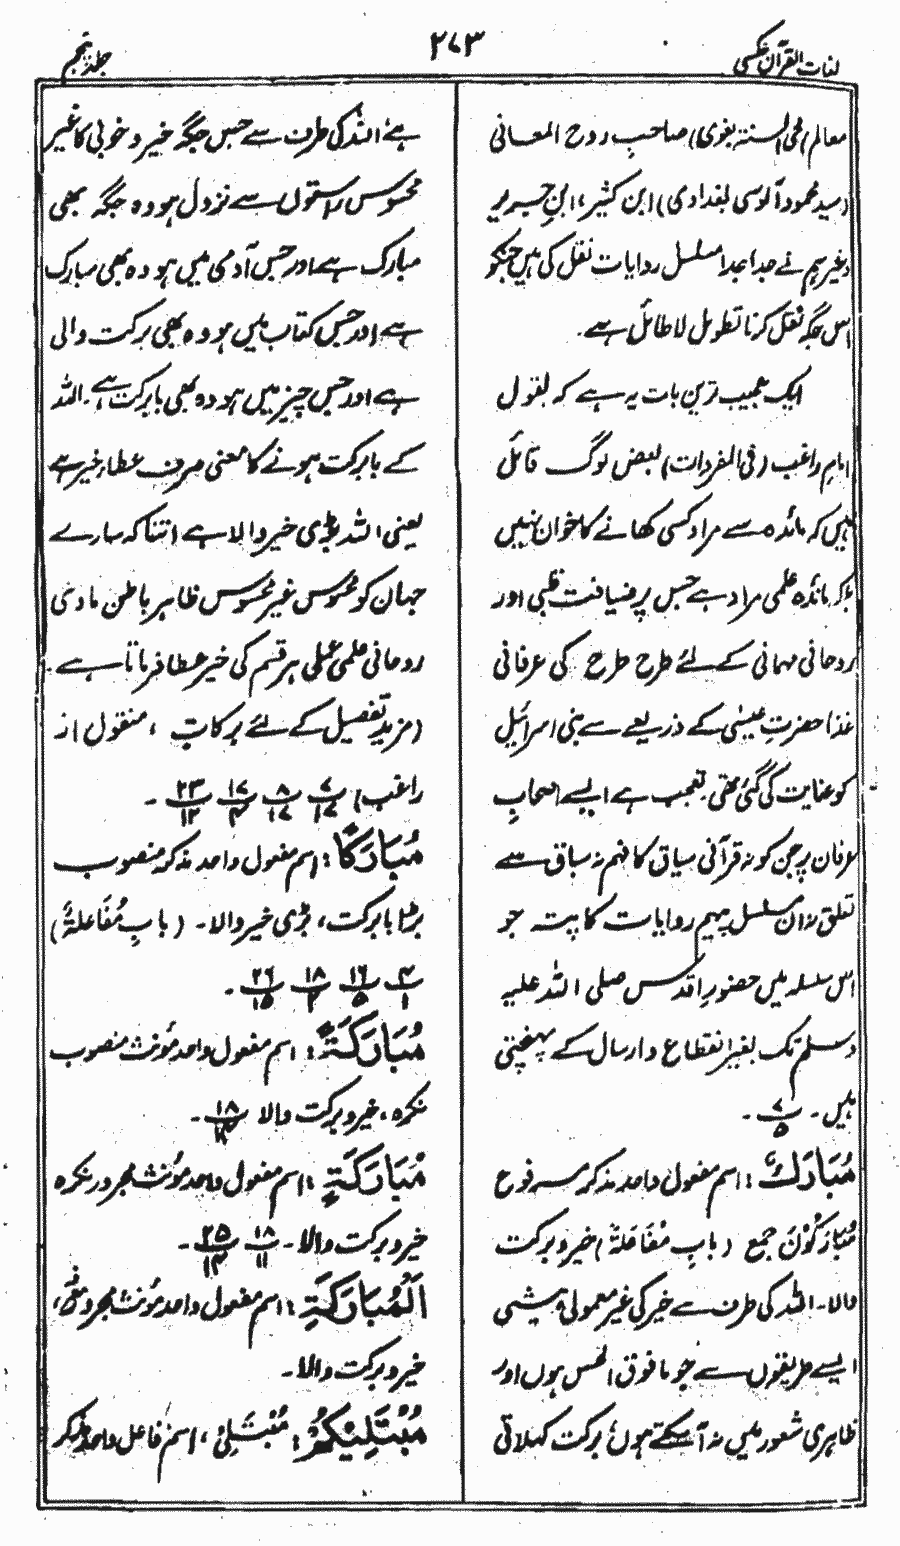 لغات القرآن عکسی
۲۷۳
جلد پنجم
معالم (محی السنۃ بغوی) صاحبِ روح المعانی
(سید محمود آلوسی بغدادی) ابن کثیر، ابن جریر
وغیرہم نے جدا جدا مسلسل روایات نقل کی ہیں جنکو
اس جگہ نقل کرنا تطویل لاطائل ہے۔
ایک عجیب ترین بات یہ ہے کہ بقول
امام راغب (فی المفردات) بعض لوگ قائل
ہیں کہ مائدہ سے مراد کسی کھانے کا خوان نہیں
بلکہ مائدہ علمی مراد ہے جس پر ضیافت قلبی اور
روحانی مہمانی کے لئے طرح طرح کی عرفانی
غذا حضرتِ عیسٰی کے ذریعے سے بنی اسرائیل
کو عنایت کی گئی تھی۔ تعجب ہے ایسے اصحابِ
عرفان پر جن کو نہ قرآنی سیاق کا فہم نہ سباق سے
تعلق نہ ان مسلسل پیہم روایات کا پتہ جو
اس سلسلہ میں حضورِ اقدس صلی اللہ علیہ
وسلم تک بغیر انقطاع و ارسال کے پہنچتی
ہیں۔ ۷/۵ ۔
مُبَارَكٌ: اسم مفعول واحد مذکر مرفوع
مُبَارَكُوْنَ جمع (بابِ مُفَاعَلَۃٌ) خیر و برکت
والا۔ اللہ کی طرف سے خیر کی غیر معمولی بیشی
ایسے طریقوں سے جو مافوق الحس ہوں اور
ظاہری شعور میں نہ آسکتے ہوں برکت کہلاتی
ہے اللہ کی طرف سے جس جگہ خیر و خوبی کا غیر
محسوس راستوں سے نزول ہو وہ جگہ بھی
مبارک ہے اور جس آدمی میں ہو وہ بھی مبارک
ہے اور جس کتاب میں ہو وہ بھی برکت والی
ہے اور جس چیز میں ہو وہ بھی بابرکت ہے۔ اللہ
کے بابرکت ہونے کا معنی صرف عطاء خیر ہے
یعنی اللہ بڑی خیر والا ہے اتنا کہ سارے
جہان کو محسوس غیر محسوس ظاہر باطن مادی
روحانی علمی عملی ہر قسم کی خیر عطا فرماتا ہے۔
(مزید تفصیل کے لئے برکاتٍ ، منقول از
راغب) ۷/۱۷ ۸/۱۷ ۱۷/۴ ۲۳/۱۲ ۔
مُبَارَكًا: اسم مفعول واحد مذکر منصوب
بڑا بابرکت، بڑی خیر والا۔ (بابِ مُفَاعَلَۃٌ)
۴/۱ ۱۶/۵ ۱۸/۲ ۲۶/۱۵ ۔
مُبَارَكَةً: اسم مفعول واحد مؤنث منصوب
نکرہ، خیر و برکت والا ۱۸/۱۲ ۔
مُبَارَكَةٍ: اسم مفعول واحد مؤنث مجرور نکرہ
خیر و برکت والا۔ ۱۸/۱۱ ۲۵/۱۴ ۔
اَلْمُبَارَكَةِ: اسم مفعول واحد مؤنث مجرور معرفہ،
خیر و برکت والا۔
مُبْتَلِيْكُمْ: مُبْتَلِیْ، اسم فاعل واحد مذکر